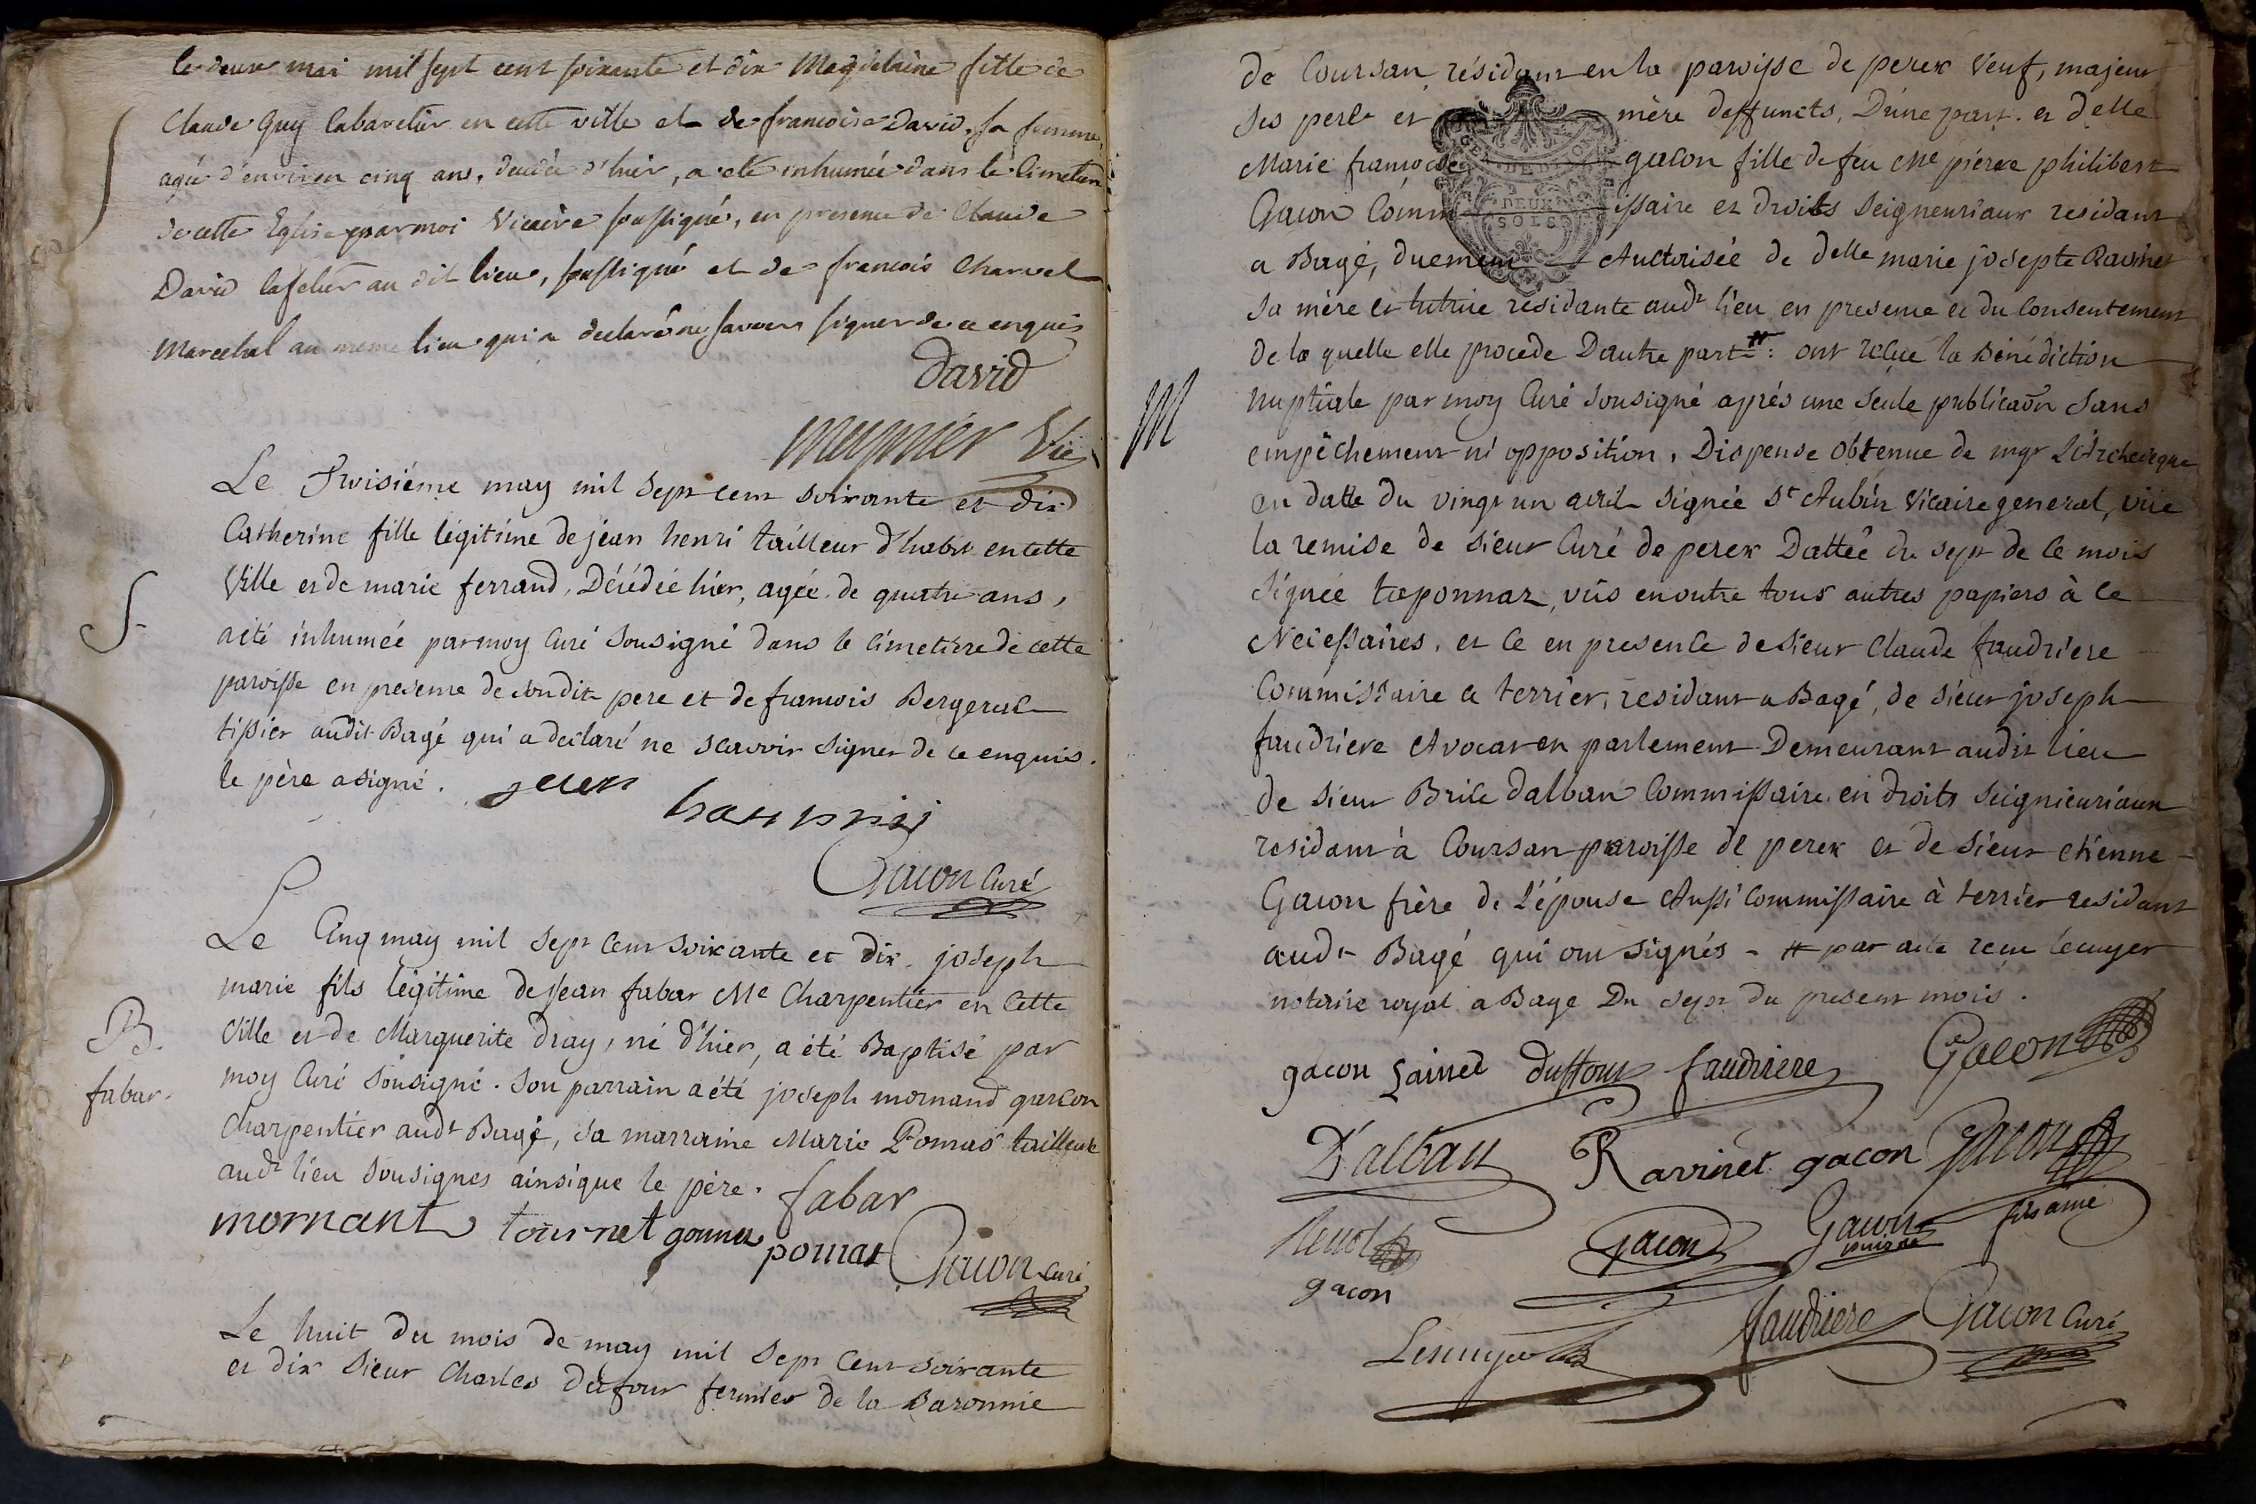 le deux mai mil sept cent soixante et dix Magdelaine fille de
Claude Guy Cabaretier en cette ville et de francoise David, sa femme,
agée d'environ cinq ans, decedée d'hier, a eté inhumée dans le Cimetiere
de cette Eglise par moi Vicaire soussigné, en presence de Claude
David au dit lieu, soussigné et de francois Charvet
Marechal au meme lieu qui a declaré ne savoir signer de ce enquis
David
meynier Vic
S
Le Troisiéme may mil sept cent soixante et dix
Catherine fille légitime de jean henri tailleur d'habit en cette
Ville et de marie ferrand, Décédée hier, agée de quatre ans,
S
a été inhumée par moy Curé Sousigné dans le cimetiere de cette
paroisse en presence de sondit pere et de francois Bergerat
tissier audit Bagé qui a declaré ne scavoir signer de ce enquis.
le père a signé. jean
Gacon Curé
Le Cinq may mil sept cent soixante et dix joseph
marie fils légitime de jean fabar Me Charpentier en Cette
B.
Ville et de Marguerite dray, né d'hier, a été Baptisé par
fabar.
moy Curé Sousigné. Son parrain a été joseph mornand garcon
Charpentier audt Bagé, sa marraine Marie Pomas tailleuse
audt lieu sousignes ainsique le père. fabar
mornant tournet pomat Gacon Curé
Le huit du mois de may mil sept Cent soixante
et dix Sieur Charles Dufour fermier de la Baronnie
de Coursan résidant en la paroisse de perex Veuf, majeur
ses pere et mère deffuncts, D'une part. et Delle
GEN DE DIJON
DEUX
SOLS
Marie francoise gacon fille de feu Me pierre philibert
Gacon Commissaire et droits Seigneuriaux residant
a Bagé, duement Auctorisée de Delle marie josepte Ravinet
sa mère et tutrice residante audt lieu en presence et du Consentement
de la quelle elle procede D'autre part #: ont reçue la Bénédiction
M
Nuptiale par moy Curé Sousigné après une seule publicaon Sans
empêchement ni opposition, Dispense obtenue de mgr L'Archeveque
en datte du vingt un avril signée St Aubin Vicaire general, vüe
la remise de sieur Curé de perex Dattée du sept de ce mois
signée teponnaz, vüs enoutre tous autres papiers à ce
Necessaires, et ce en presence de sieur Claude faudriere
Commissaire a terrier, residant a Bagé, de sieur joseph
faudriere Avocat en parlement Demeurant audit lieu
de sieur Brice Dalban Commissaire en droits seignieuriaux
residant à Coursan paroisse de perex et de sieur etienne
Gacon frère de L'épouse Aussi Commissaire à terrier residant
audt Bagé qui ont signés - # par acte recu lecuyer
notaire royal a Bagé Du sept du present mois.
gacon Dufour faudriere Gacon
D'alban Ravinet gacon Gacon
fils ainé
Gacon Gacon
puisné
gacon
Lescuyer faudriere Gacon Curé